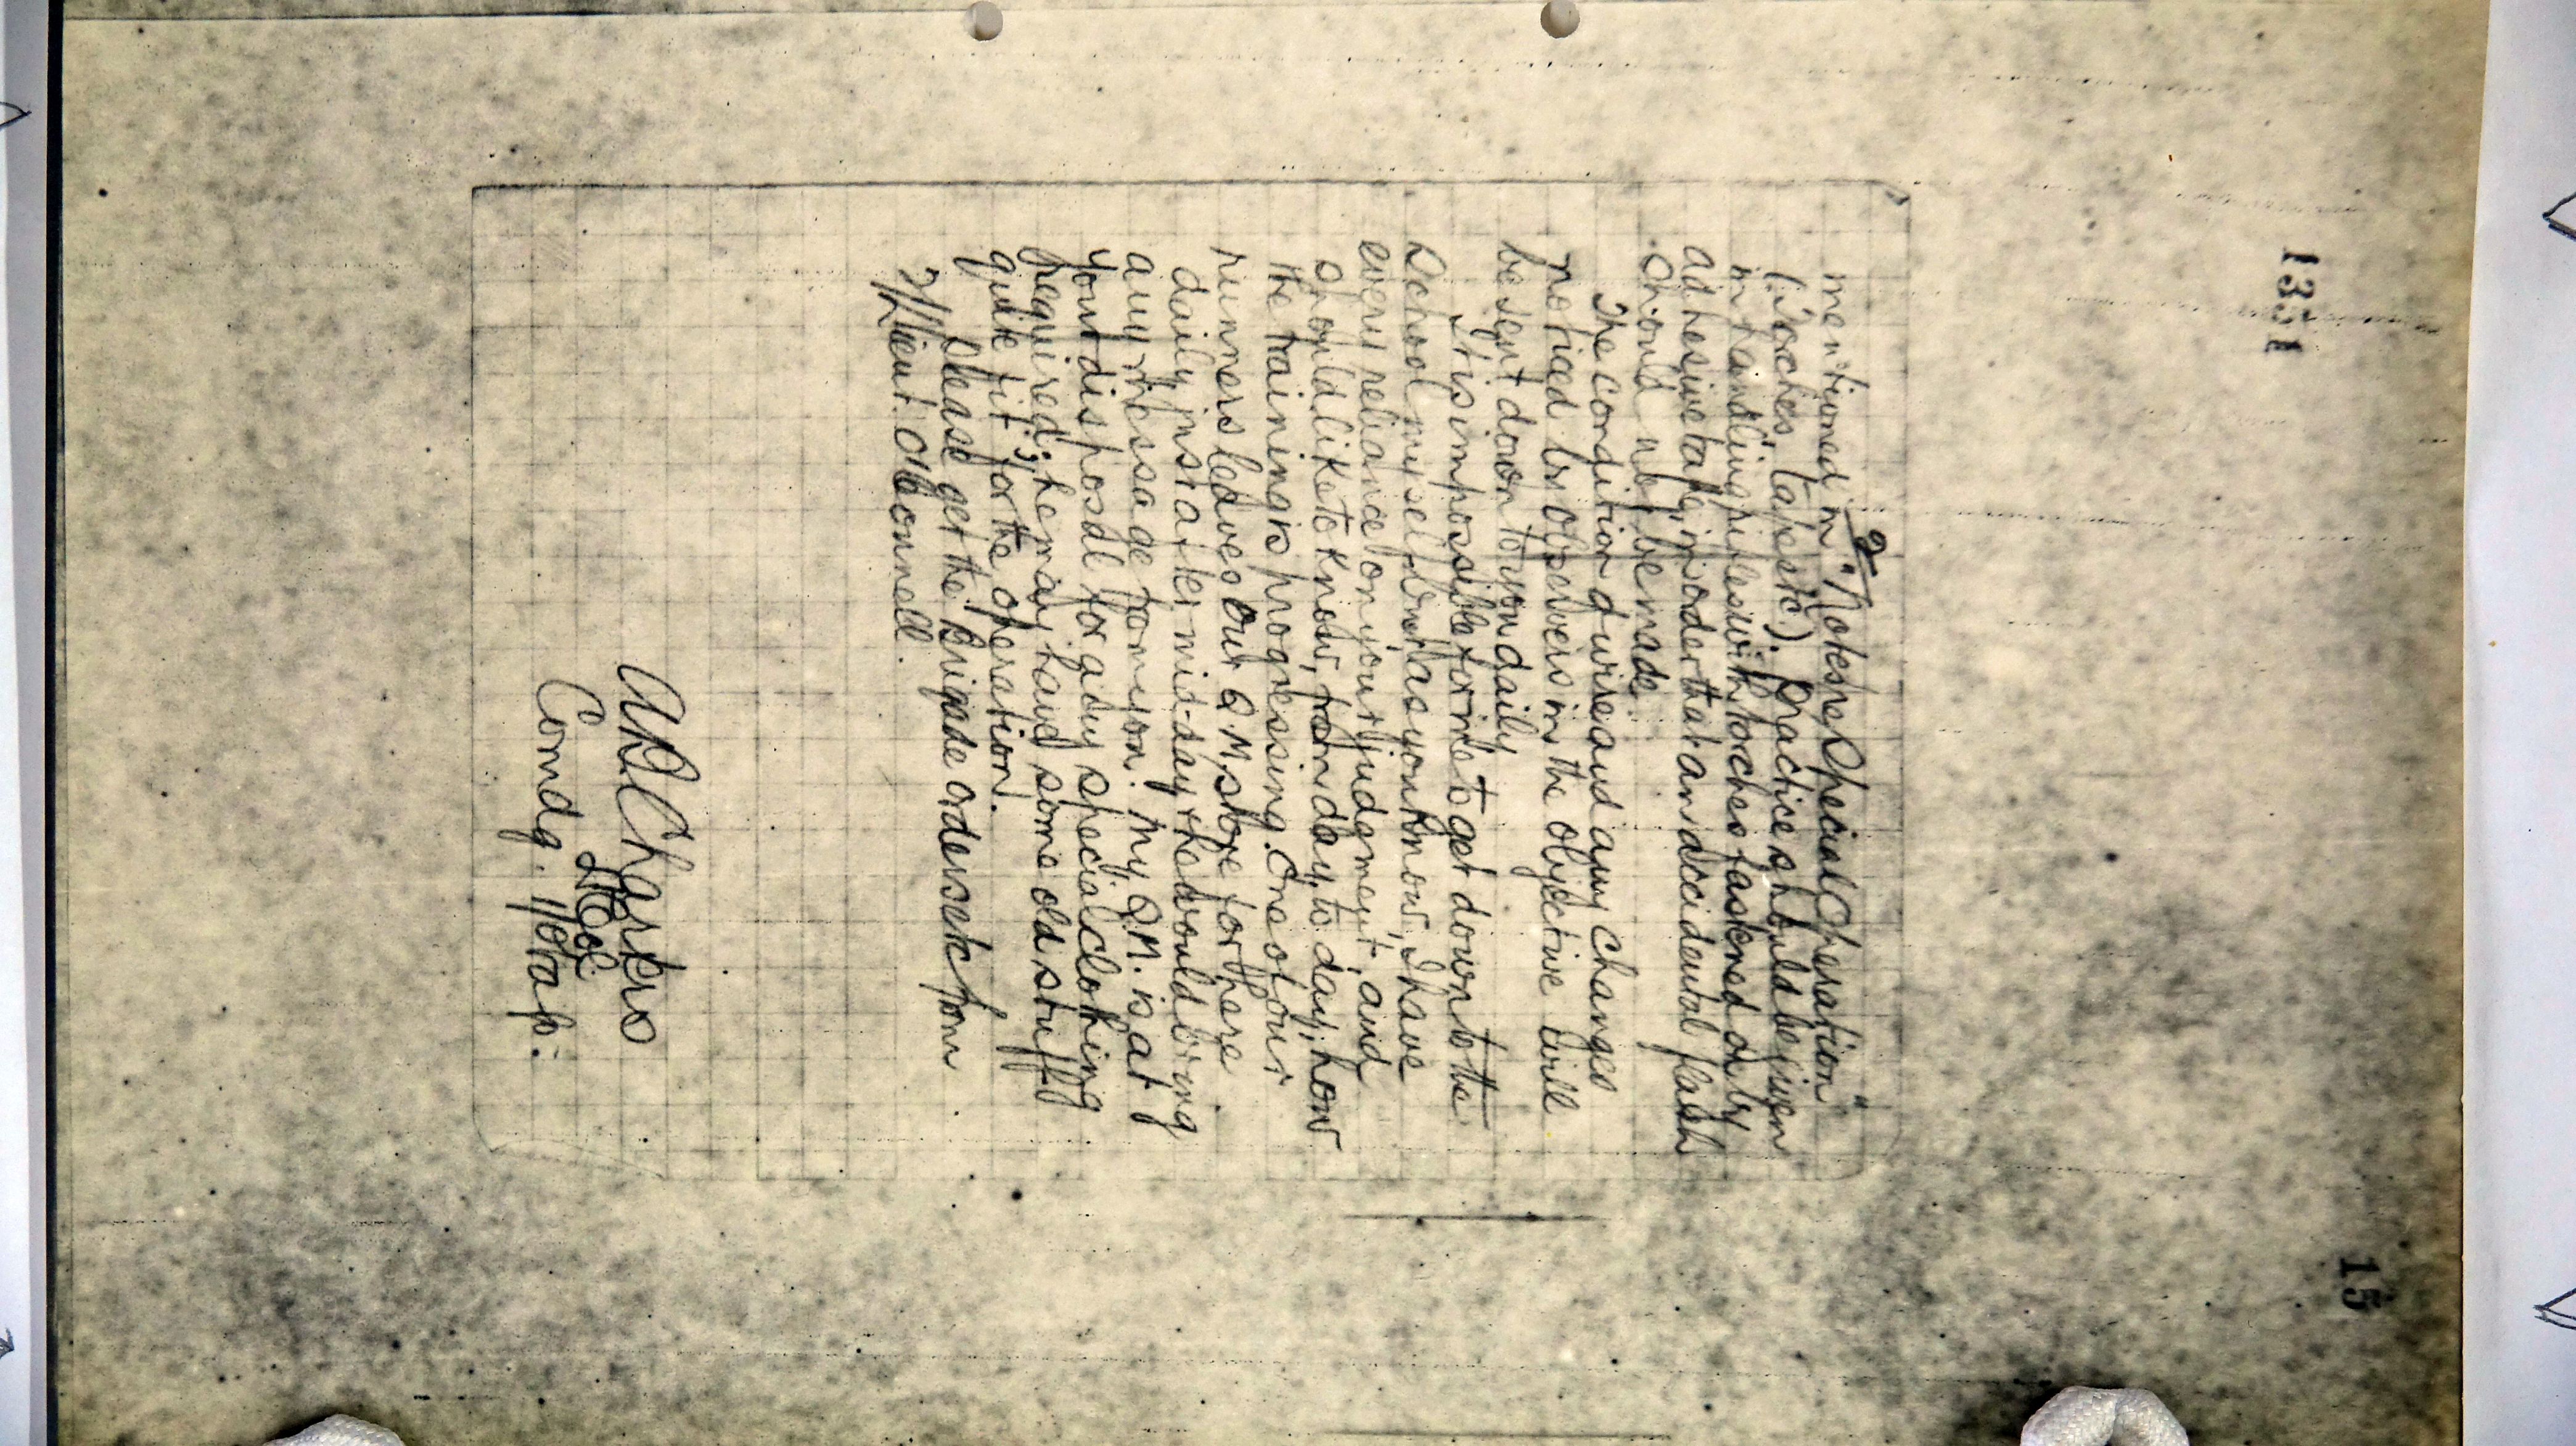 1331
15
2
mentioned in "Notes re Special Operation"
(torches, tapes etc). Practice should be given
in handling rifles with torches fastened on by
adhesive tape, in order that an accidental flash
should not be made.
The condition of wire and any changes
noticed by observers in the objective will
be sent down to you daily
It is impossible for me to get down to the
School myself, but as you know, I have
every reliance on your judgment, and
should like to know, from day to day, how
the training is progressing. One of our
runners leaves our Q.M. store for here
daily just after mid-day & he would bring
any message from you. My Q.M. is at
your disposal for any special clothing
required; he may have some old stuff
quite fit for the operation.
Please get the Brigade orders etc from
Lieut. O'Connell.
Lt Col
Comdg.